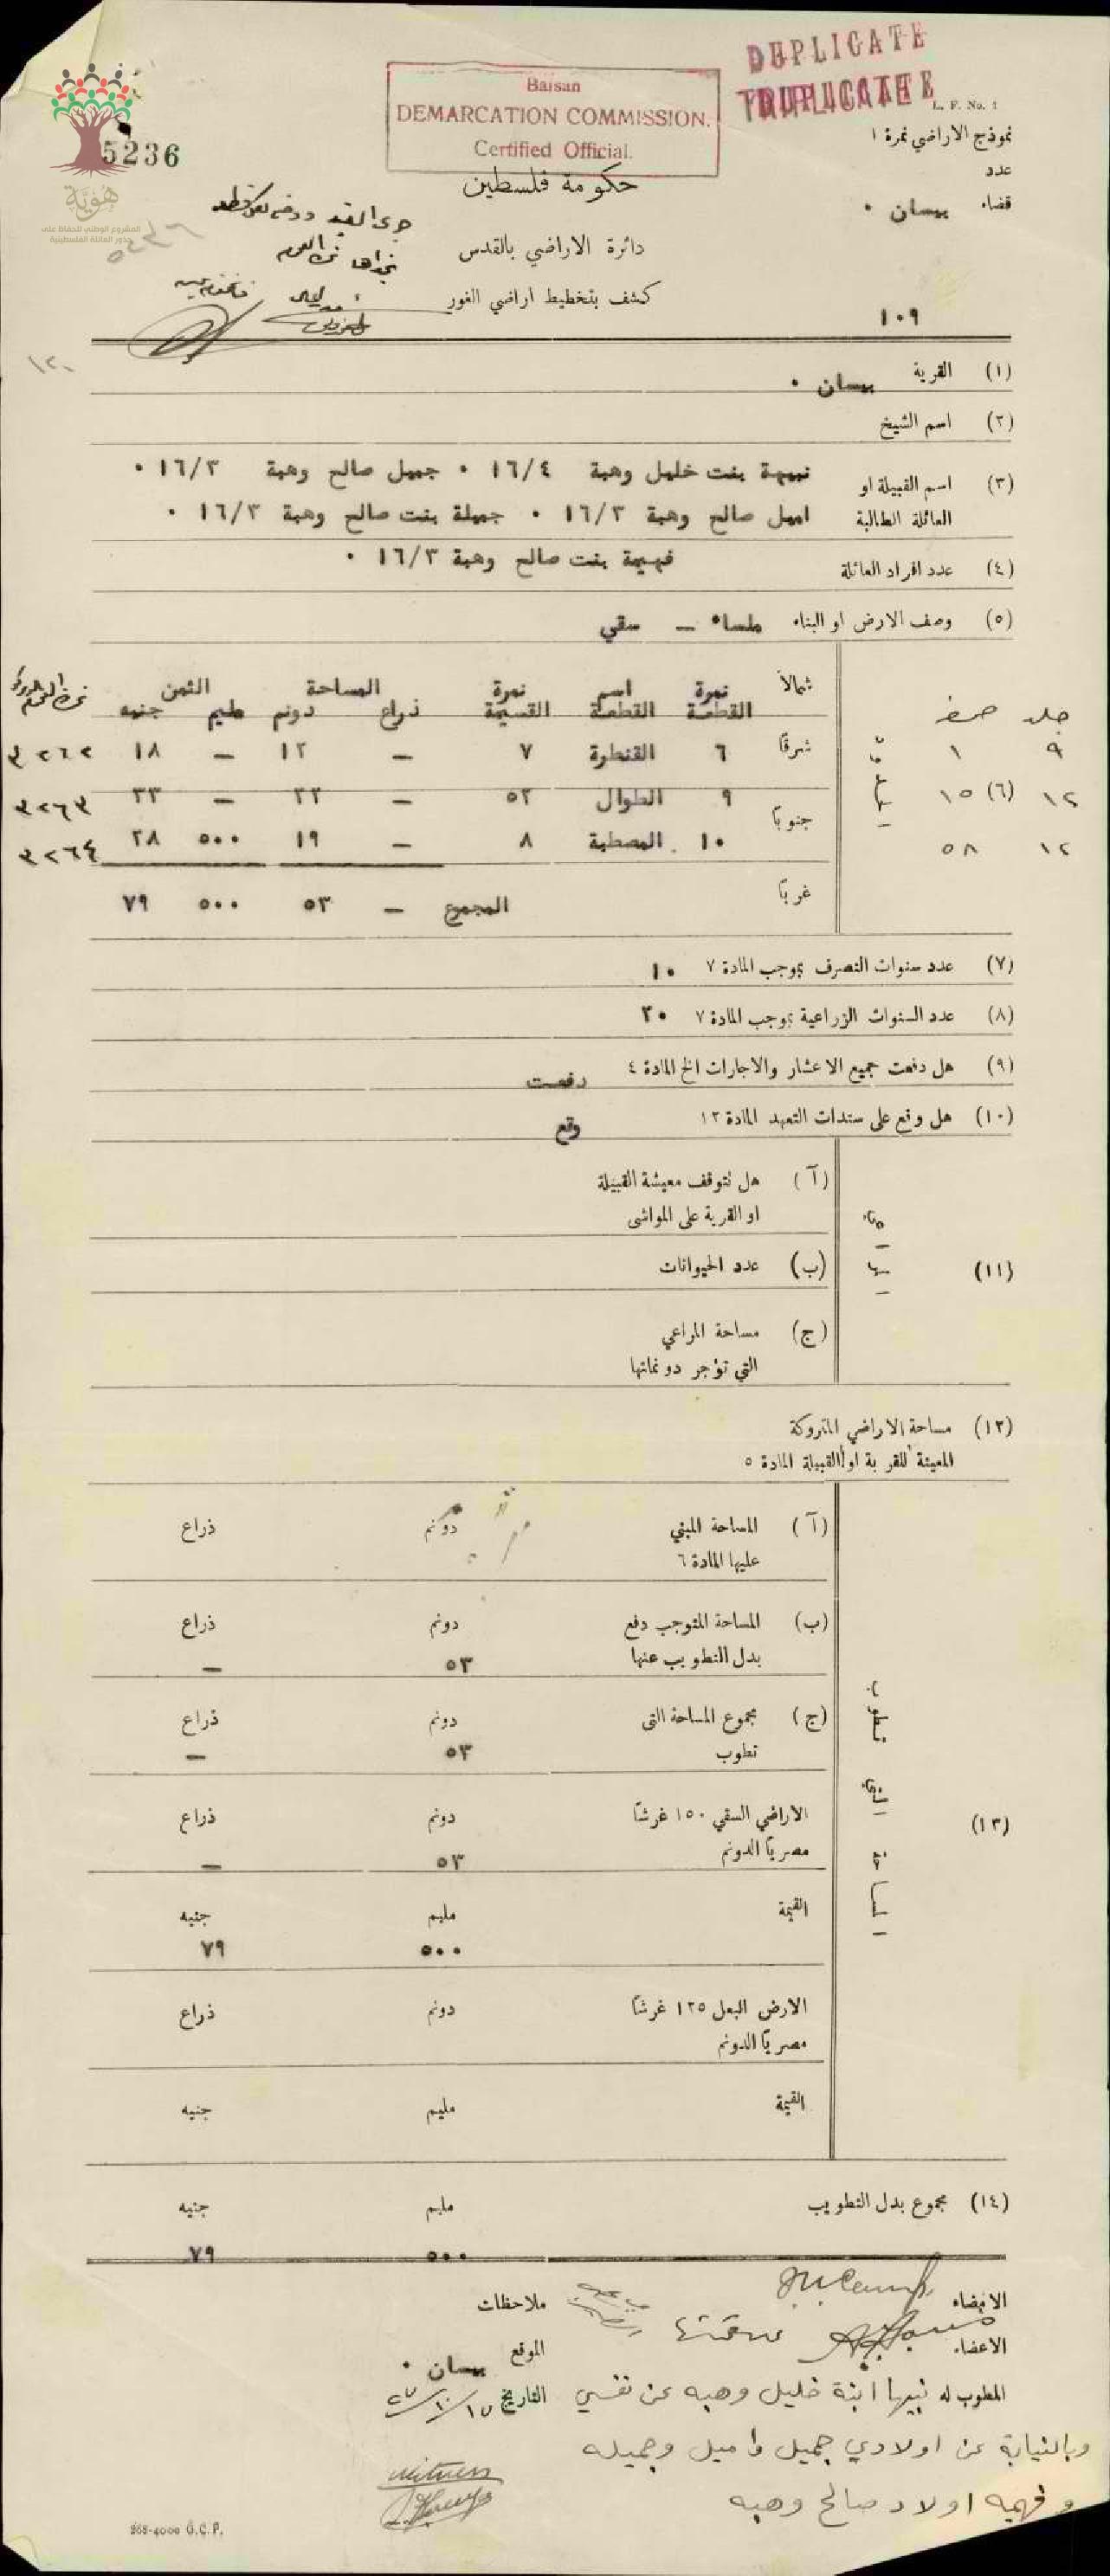 DUPLICATE
Baisan
DEMARCATION COMMISSION.
Certified Official.
L. F. No. 1
نموذج الاراضي نمرة ١
5236
عدد
حكومة فلسطين
قضاء بيسان ٠
هوية
المشروع الوطني للحفاظ على
جذور العائلة الفلسطينية
دائرة الاراضي بالقدس
كشف بتخطيط اراضي الغور
١٠٩
١٢٠
(١) القرية بيسان ٠
(٢) اسم الشيخ
(٣) اسم القبيلة او نبيهة بنت خليل وهبة ١٦/٤ ٠ جميل صالح وهبة ١٦/٣ ٠
العائلة الطالبة اميل صالح وهبة ١٦/٣ ٠ جميلة بنت صالح وهبة ١٦/٣ ٠
(٤) عدد افراد العائلة فهيمة بنت صالح وهبة ١٦/٣ ٠
(٥) وصف الارض او البناء ملساء — سقي
شمالاً نمرة اسم نمرة المساحة الثمن
جلد صحيفة القطعة القطعة القسيمة ذراع دونم مليم جنيه
٩ ١ شرقاً ٦ القنطرة ٧ — ١٢ — ١٨ ٣٢٦٢
١٢ (٦) ١٥ ٩ الطوال ٥٢ — ٢٢ — ٣٣ ٣٢٦٣
جنوباً
١٢ ٥٨ ١٠ المصطبة ٨ — ١٩ ٥٠٠ ٢٨ ٣٢٦٤
غرباً المجموع — ٥٣ ٥٠٠ ٧٩
(٧) عدد سنوات التصرف بموجب المادة ٧ ١٠
(٨) عدد السنوات الزراعية بموجب المادة ٧ ٢٠
(٩) هل دفعت جميع الاعشار والاجارات الخ المادة ٤ دفعت
(١٠) هل وقع على سندات التعهد المادة ١٢ وقع
(آ) هل تتوقف معيشة القبيلة
او القرية على المواشى
(١١) (ب) عدد الحيوانات
(ج) مساحة المراعي
التي تؤجر دونماتها
(١٢) مساحة الاراضي المتروكة
المعينة للقرية او القبيلة المادة ٥
(آ) المساحة المبني دونم ذراع
عليها المادة ٦
(ب) المساحة المتوجب دفع دونم ذراع
بدل التطويب عنها ٥٣ —
(ج) مجموع المساحة التى دونم ذراع
تطوب ٥٣ —
(١٣) الاراضي السقي ١٥٠ غرشاً دونم ذراع
مصرياً الدونم ٥٣ —
القيمة مليم جنيه
٥٠٠ ٧٩
الارض البعل ١٢٥ غرشاً دونم ذراع
مصرياً الدونم
القيمة مليم جنيه
(١٤) مجموع بدل التطويب مليم جنيه
٥٠٠ ٧٩
الامضاء
ملاحظات
الاعضاء
الموقع بيسان ٠
المطوب له نبيها ابنة خليل وهبه عن نفسي التاريخ
وبالنيابة عن اولادي جميل واميل وجميله
وفهيمه اولاد صالح وهبه
Witness
968-4000 G.C.P.